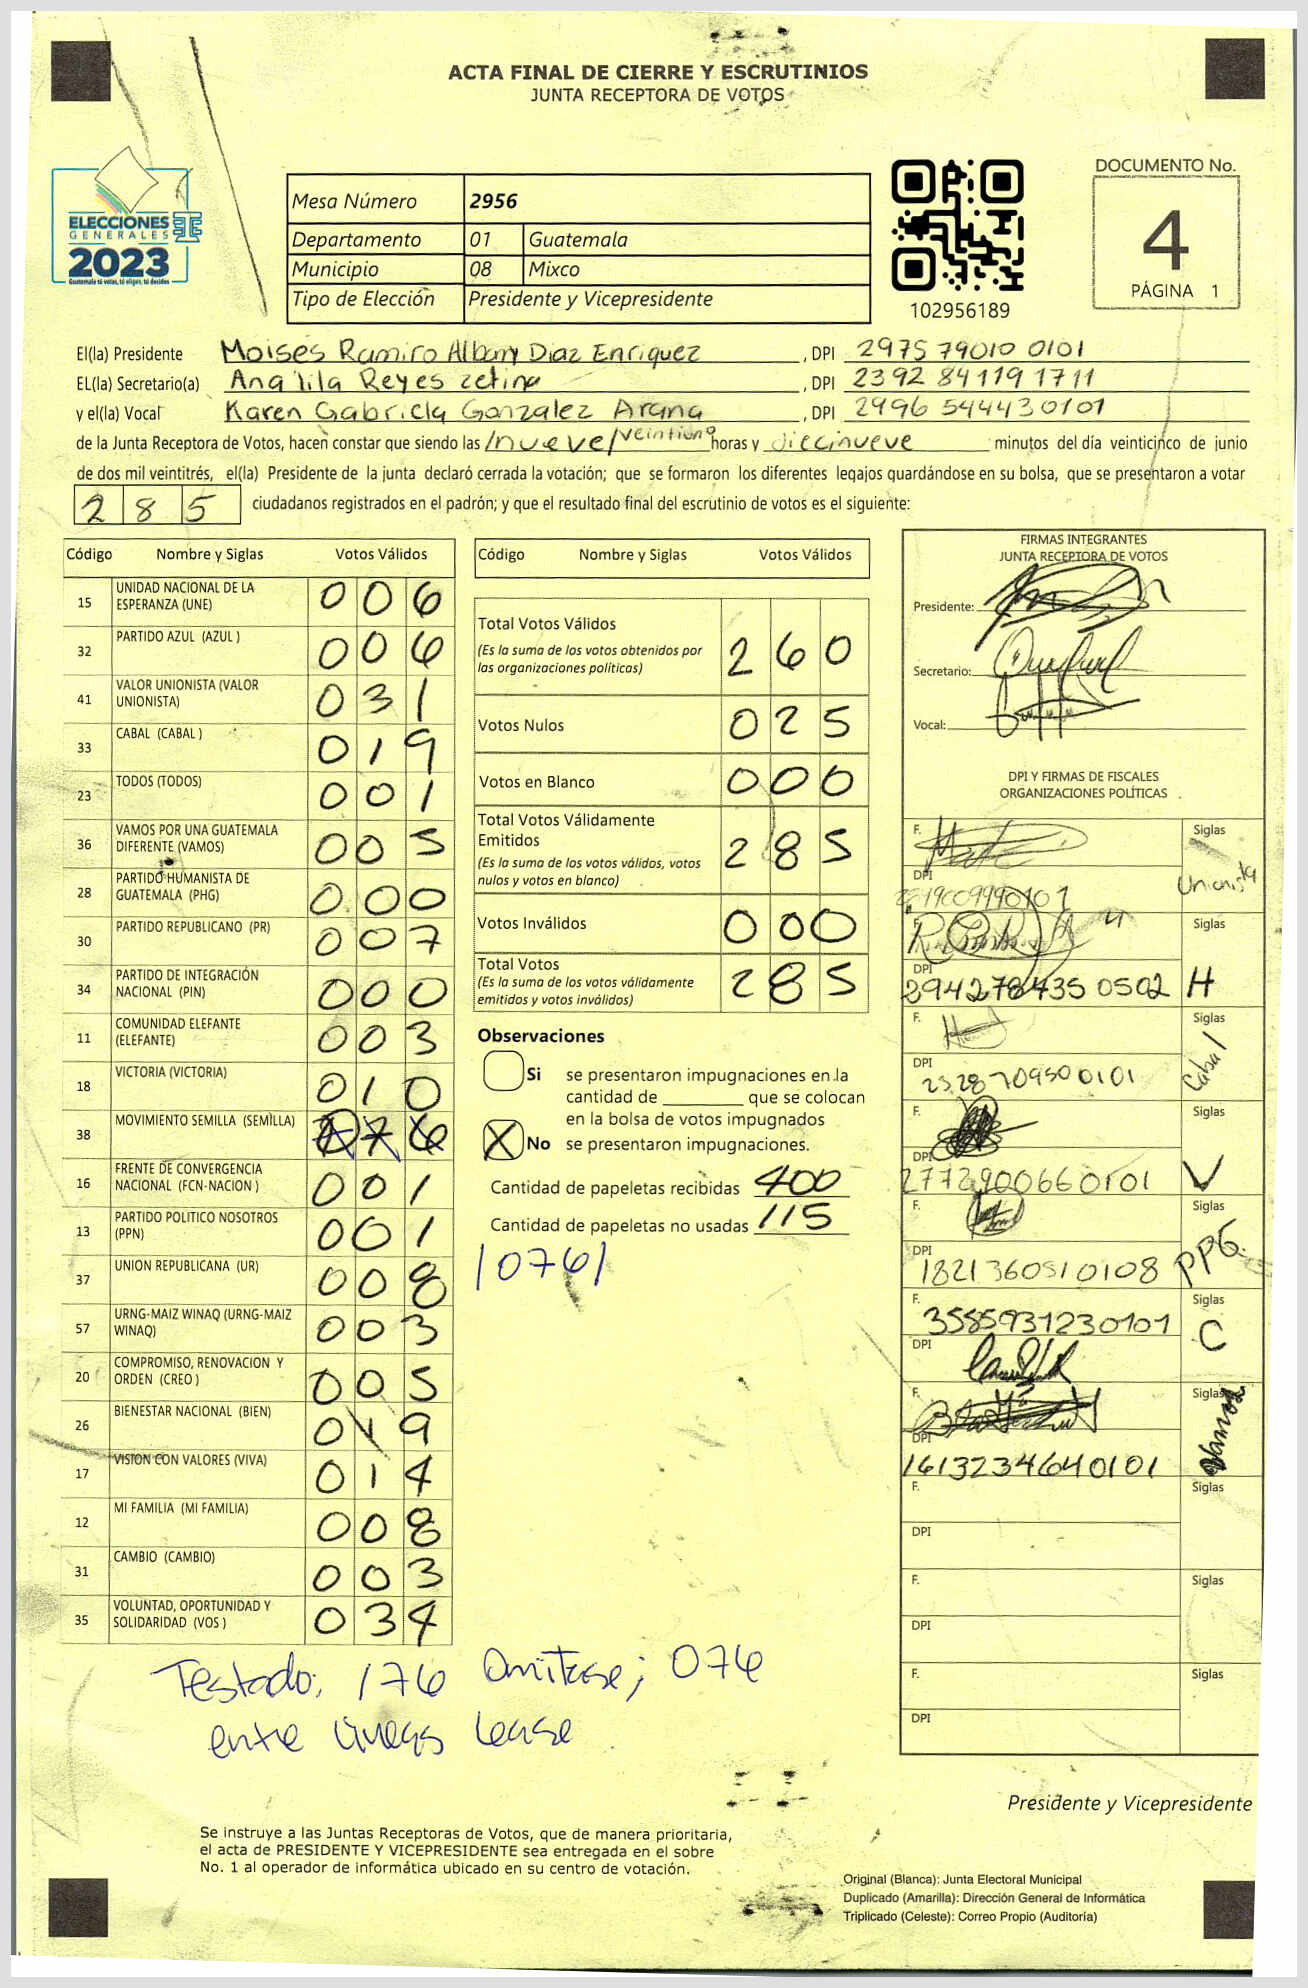 ACTA FINAL DE CIERRE Y ESCRUTINIOS
JUNTA RECEPTORA DE VOTOS
ELECCIONES
GENERALES
2023
Guatemala tú votas, tú eliges, tú decides
Mesa Número 2956
Departamento 01 Guatemala
Municipio 08 Mixco
Tipo de Elección Presidente y Vicepresidente
102956189
DOCUMENTO No.
4
PÁGINA 1
El(la) Presidente Moises Ramiro Albany Diaz Enriquez, DPI 2975 79010 0101
EL(la) Secretario(a) Ana Lila Reyes zetina, DPI 2392 84119 1711
y el(la) Vocal Karen Gabriela Gonzalez Arana, DPI 2996 54443 0101
de la Junta Receptora de Votos, hacen constar que siendo las /nueve/ veintiuno horas y diecinueve minutos del día veinticinco de junio
de dos mil veintitrés, el(la) Presidente de la junta declaró cerrada la votación; que se formaron los diferentes legajos quardándose en su bolsa, que se presentaron a votar
285 ciudadanos registrados en el padrón; y que el resultado final del escrutinio de votos es el siguiente:
Código Nombre y Siglas Votos Válidos
15 UNIDAD NACIONAL DE LA ESPERANZA (UNE) 006
32 PARTIDO AZUL (AZUL ) 006
41 VALOR UNIONISTA (VALOR UNIONISTA) 031
33 CABAL (CABAL ) 019
23 TODOS (TODOS) 001
36 VAMOS POR UNA GUATEMALA DIFERENTE (VAMOS) 005
28 PARTIDO HUMANISTA DE GUATEMALA (PHG) 000
30 PARTIDO REPUBLICANO (PR) 007
34 PARTIDO DE INTEGRACIÓN NACIONAL (PIN) 000
11 COMUNIDAD ELEFANTE (ELEFANTE) 003
18 VICTORIA (VICTORIA) 010
38 MOVIMIENTO SEMILLA (SEMILLA) 76
16 FRENTE DE CONVERGENCIA NACIONAL (FCN-NACION ) 001
13 PARTIDO POLITICO NOSOTROS (PPN) 001
37 UNION REPUBLICANA (UR) 008
57 URNG-MAIZ WINAQ (URNG-MAIZ WINAQ) 003
20 COMPROMISO, RENOVACION Y ORDEN (CREO ) 005
26 BIENESTAR NACIONAL (BIEN) 019
17 VISION CON VALORES (VIVA) 014
12 MI FAMILIA (MI FAMILIA) 008
31 CAMBIO (CAMBIO) 003
35 VOLUNTAD, OPORTUNIDAD Y SOLIDARIDAD (VOS ) 034
Código Nombre y Siglas Votos Válidos
Total Votos Válidos 260
(Es la suma de los votos obtenidos por
las organizaciones políticas)
Votos Nulos 025
Votos en Blanco 000
Total Votos Válidamente
Emitidos 285
(Es la suma de los votos válidos, votos
nulos y votos en blanco)
Votos Inválidos 000
Total Votos 285
(Es la suma de los votos válidamente
emitidos y votos inválidos)
Observaciones
Si se presentaron impugnaciones en la
cantidad de ________ que se colocan
en la bolsa de votos impugnados
X No se presentaron impugnaciones.
Cantidad de papeletas recibidas 400
Cantidad de papeletas no usadas 115
/076/
FIRMAS INTEGRANTES
JUNTA RECEPTORA DE VOTOS
Presidente:
Secretario:
Vocal:
DPI Y FIRMAS DE FISCALES
ORGANIZACIONES POLÍTICAS
F. Siglas
DPI Unionista
F. Siglas
DPI 2942784350502 H
F. Siglas
DPI 2328709500101 Cabal
F. Siglas
DPI 2772900660101 V
F. Siglas
DPI 1821360510108 PPG.
F. 3585931230101 Siglas
DPI C
F. Siglas
DPI 1613234640101 Vamos
F. Siglas
DPI
F. Siglas
DPI
F. Siglas
DPI
Testado; 176 Omitase; 076
entre lineas lease
Presidente y Vicepresidente
Se instruye a las Juntas Receptoras de Votos, que de manera prioritaria,
el acta de PRESIDENTE Y VICEPRESIDENTE sea entregada en el sobre
No. 1 al operador de informática ubicado en su centro de votación.
Original (Blanca): Junta Electoral Municipal
Duplicado (Amarilla): Dirección General de Informática
Triplicado (Celeste): Correo Propio (Auditoría)